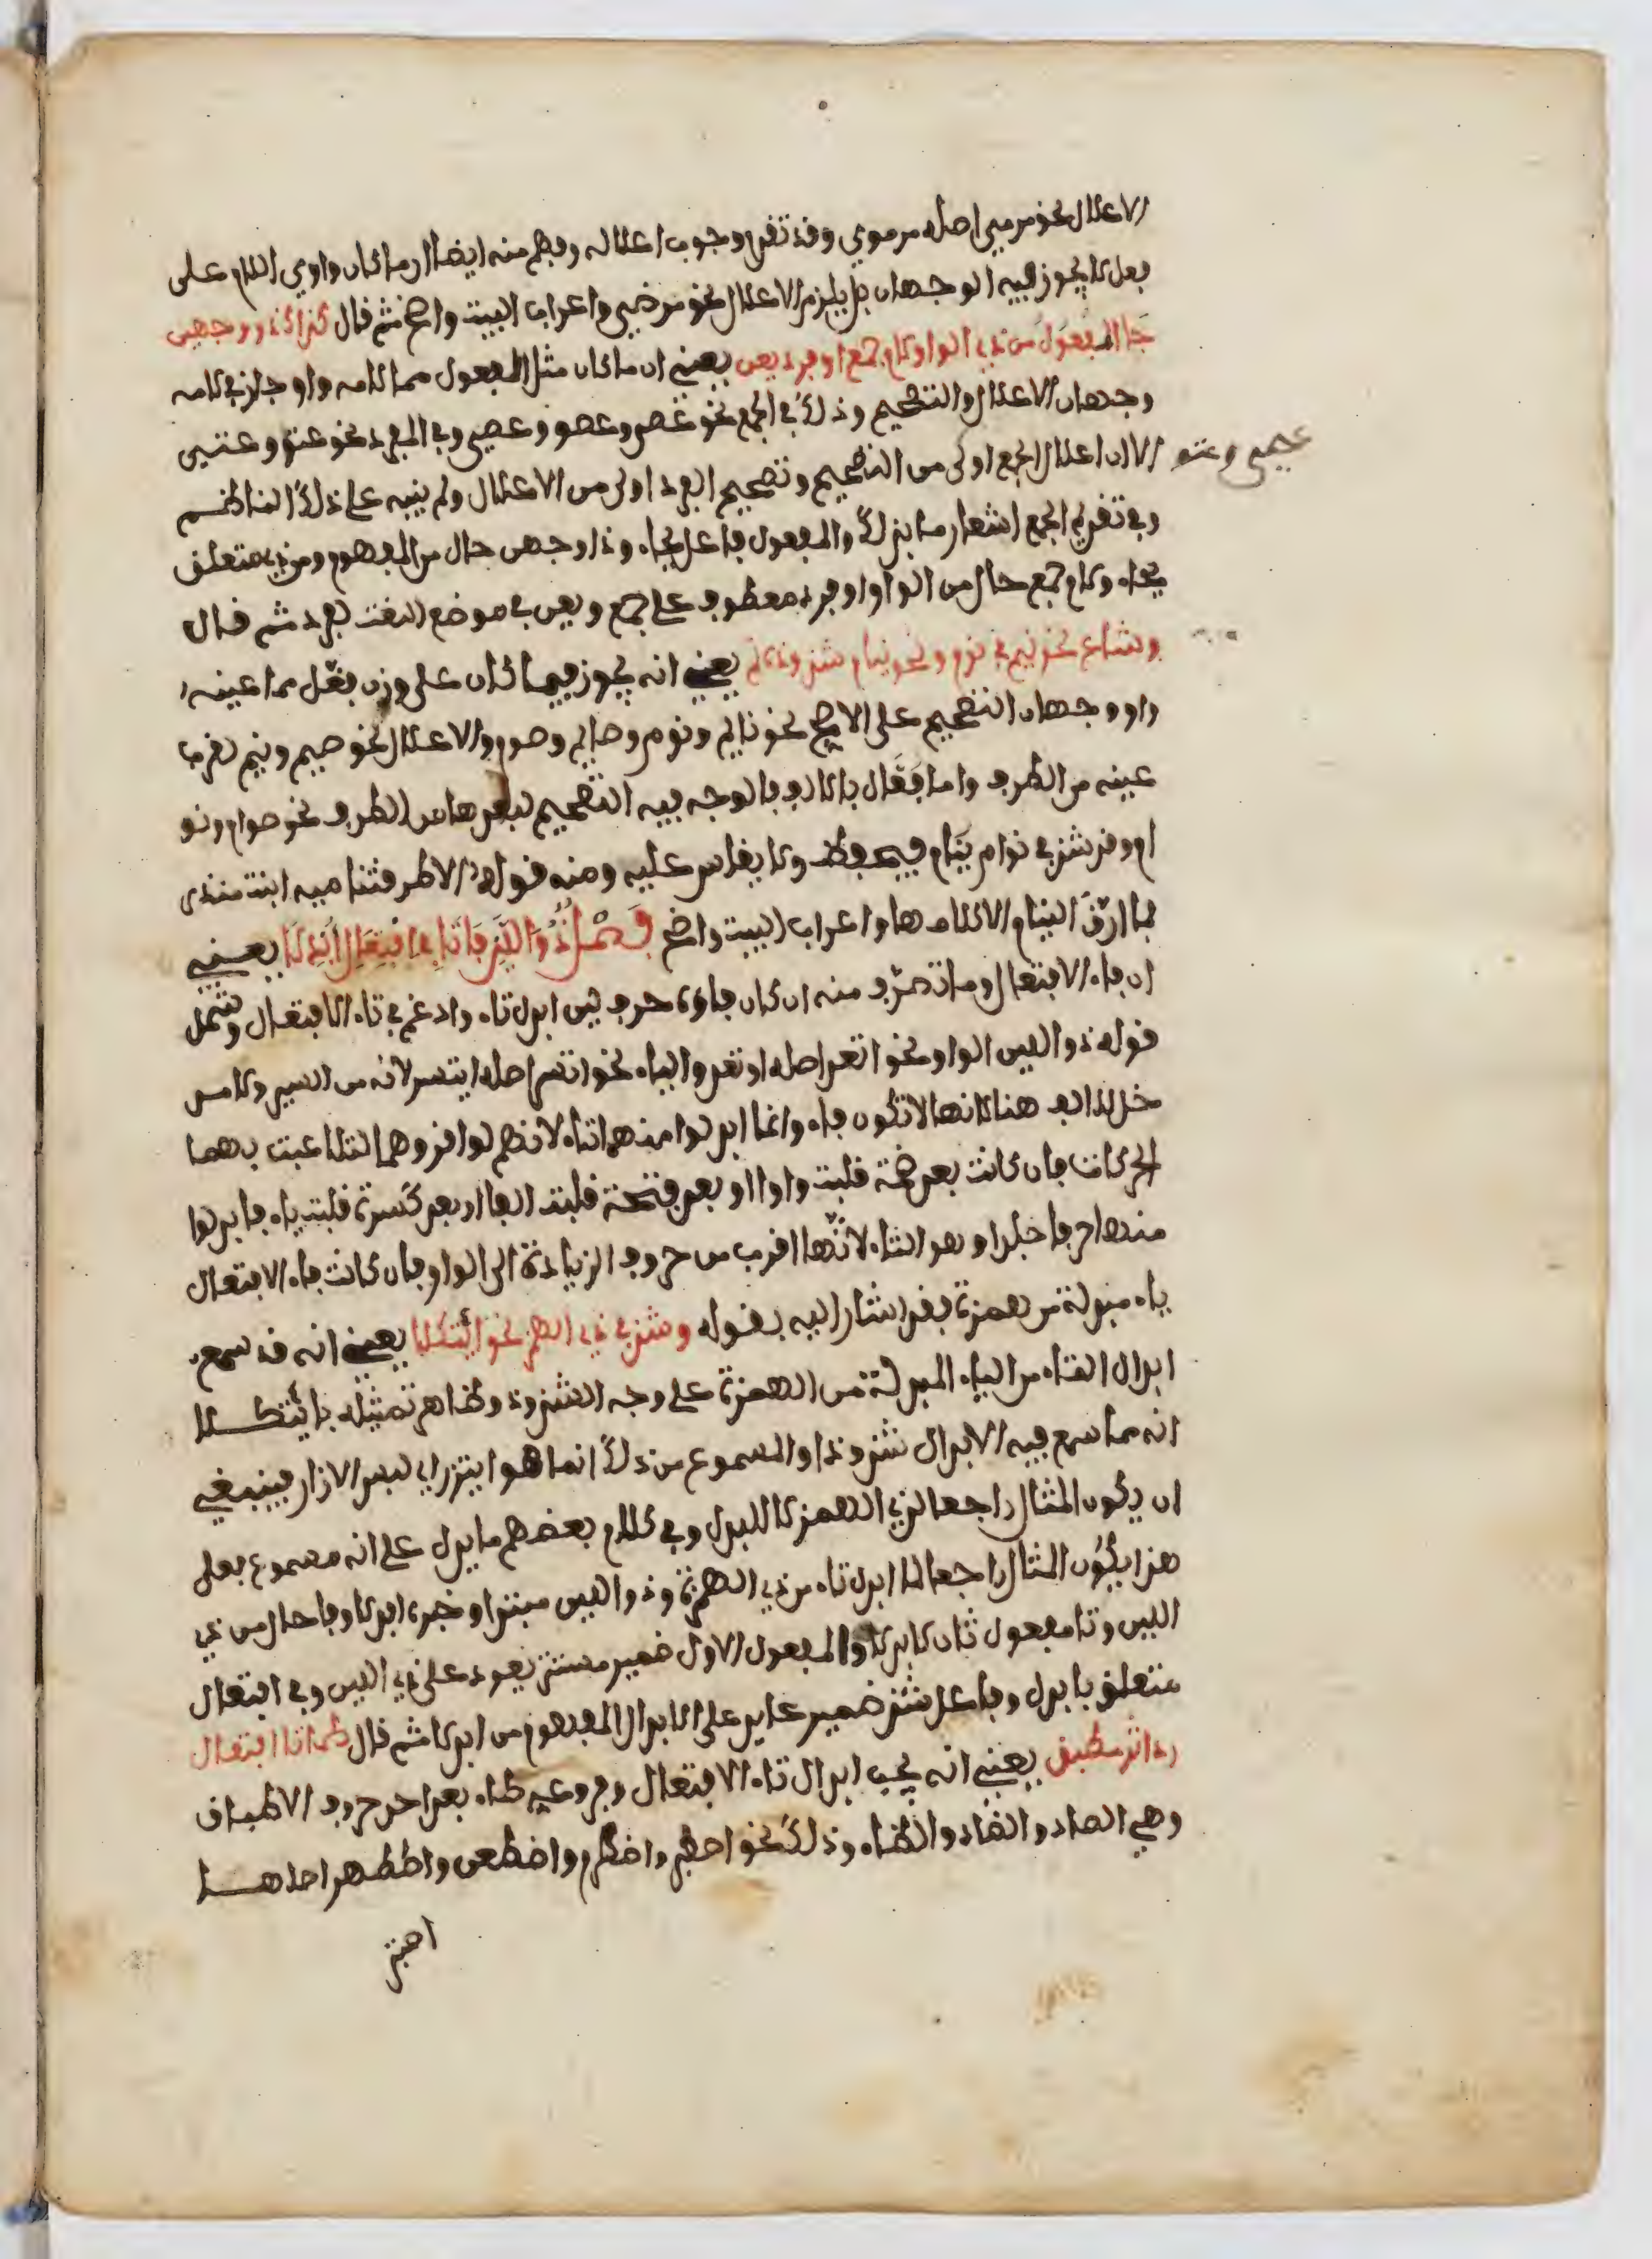 الاعلال نحو مرمي اصله مرموي وقد تقدم وجوب اعلاله وفهم منه ايضا ان ما كان واوي اللام على
فعل لا يجوز فيه الوجهان بل يلزم الاعلال نحو مرضي واعراب البيت واضح ثم قال كذاك ذا وجهين
جا المفعول من ذي الواو لام جمع او فرد يعن يعني ان ما كان مثل المفعول مما لامه واو جاز في لامه
وجهان الاعلال والتصحيح وذلك في الجمع نحو عصي وعصو وعصي وفي المفرد نحو عتو وعتيى
الا ان اعلال الجمع اولى من التصحيح وتصحيح المفرد اولى من الاعلال ولم ينبه على ذلك الناظم
وفي تقديم الجمع اشعار ما بذلك والمفعول فاعل بجاء وذا وجهين حال من المفعول ومن ذي متعلق
بجاء ولام جمع حال من الواو او فرد معطوف على جمع ويعن في موضع النعت لفرد ثم قال
وشاع نحو نيم في نوم ونحو نيام شذوذه نم يعني انه يجوز فيما كان على وزن فعّل مما عينه
واو وجهان التصحيح على الاصح نحو نائم ونوم وصائم وصوم والاعلال نحو صيم ونيم لقرب
عينه من الطرف واما فعّال بالالف فالوجه فيه التصحيح لبعدها من الطرف نحو صوام ونو
ام وقد شذ في نوام نيّام فيحفظ ولا يقاس عليه ومنه قوله الا طرقتنا ميه ابنت منذر
فما ارّق النيام الا كلامها واعراب البيت واضح فصل ذو اللين فا تا في افتعال ابدلا يعني
ان فاء الافتعال وما تصرّف منه ان كان فاؤه حرف لين ابدل تاء وادغم في تاء الافتعال وشمل
قوله ذو اللين الواو نحو اتعد اصله اوتعد والياء نحو اتسر اصله ايتسر لانه من اليسر ولا مد
خل للالف هنا لانها لا تكون فاء وانما ابدلوا منهما التاء لانهم لو اقروهما لتلاعبت بهما
الحركات فان كانت بعد ضمة قلبت واوا او بعد فتحة قلبت الفا او بعد كسرة قلبت ياء فابدلوا
منها حرفا جلدا وهو التاء لانها اقرب من حروف الزيادة الى الواو فان كانت فاء الافتعال
ياء مبدلة من همزة فقد اشار اليه بقوله وشذ في ذي الهمز نحو ائتكلا يعني انه قد سمع
ابدال التاء من الياء المبدلة من الهمزة على وجه الشذوذ وظاهر تمثيله بائتكلا
انه مما سمع فيه الابدال شذوذا والمسموع من ذلك انما هو ايتزر اي لبس الازار فينبغي
ان يكون المثال راجعا لذي الهمز لا للبدل وفي كلام بعضهم ما يدل على انه مسموع فعلى
هذا يكون المثال راجعا لما ابدل تاء من ذي الهمزة وذو اللين مبتدا وخبره ابدلا وفا حال من ذي
اللين وتا مفعول ثان لابدلا والمفعول الاول ضمير مستتر يعود على ذي اللين وفي افتعال
متعلق بابدل وفاعل شذ ضمير عايد على الابدال المفهوم من ابدلا ثم قال طا تا افتعال
رد اثر مطبق يعني انه يجب ابدال تاء الافتعال وفروعه طاء بعد احد حروف الاطباق
وهي الصاد والضاد والطاء والظاء وذلك نحو اصطبر واضطرم واضطعن واظطهر اصلها
اصتبر
عجمع وعتو